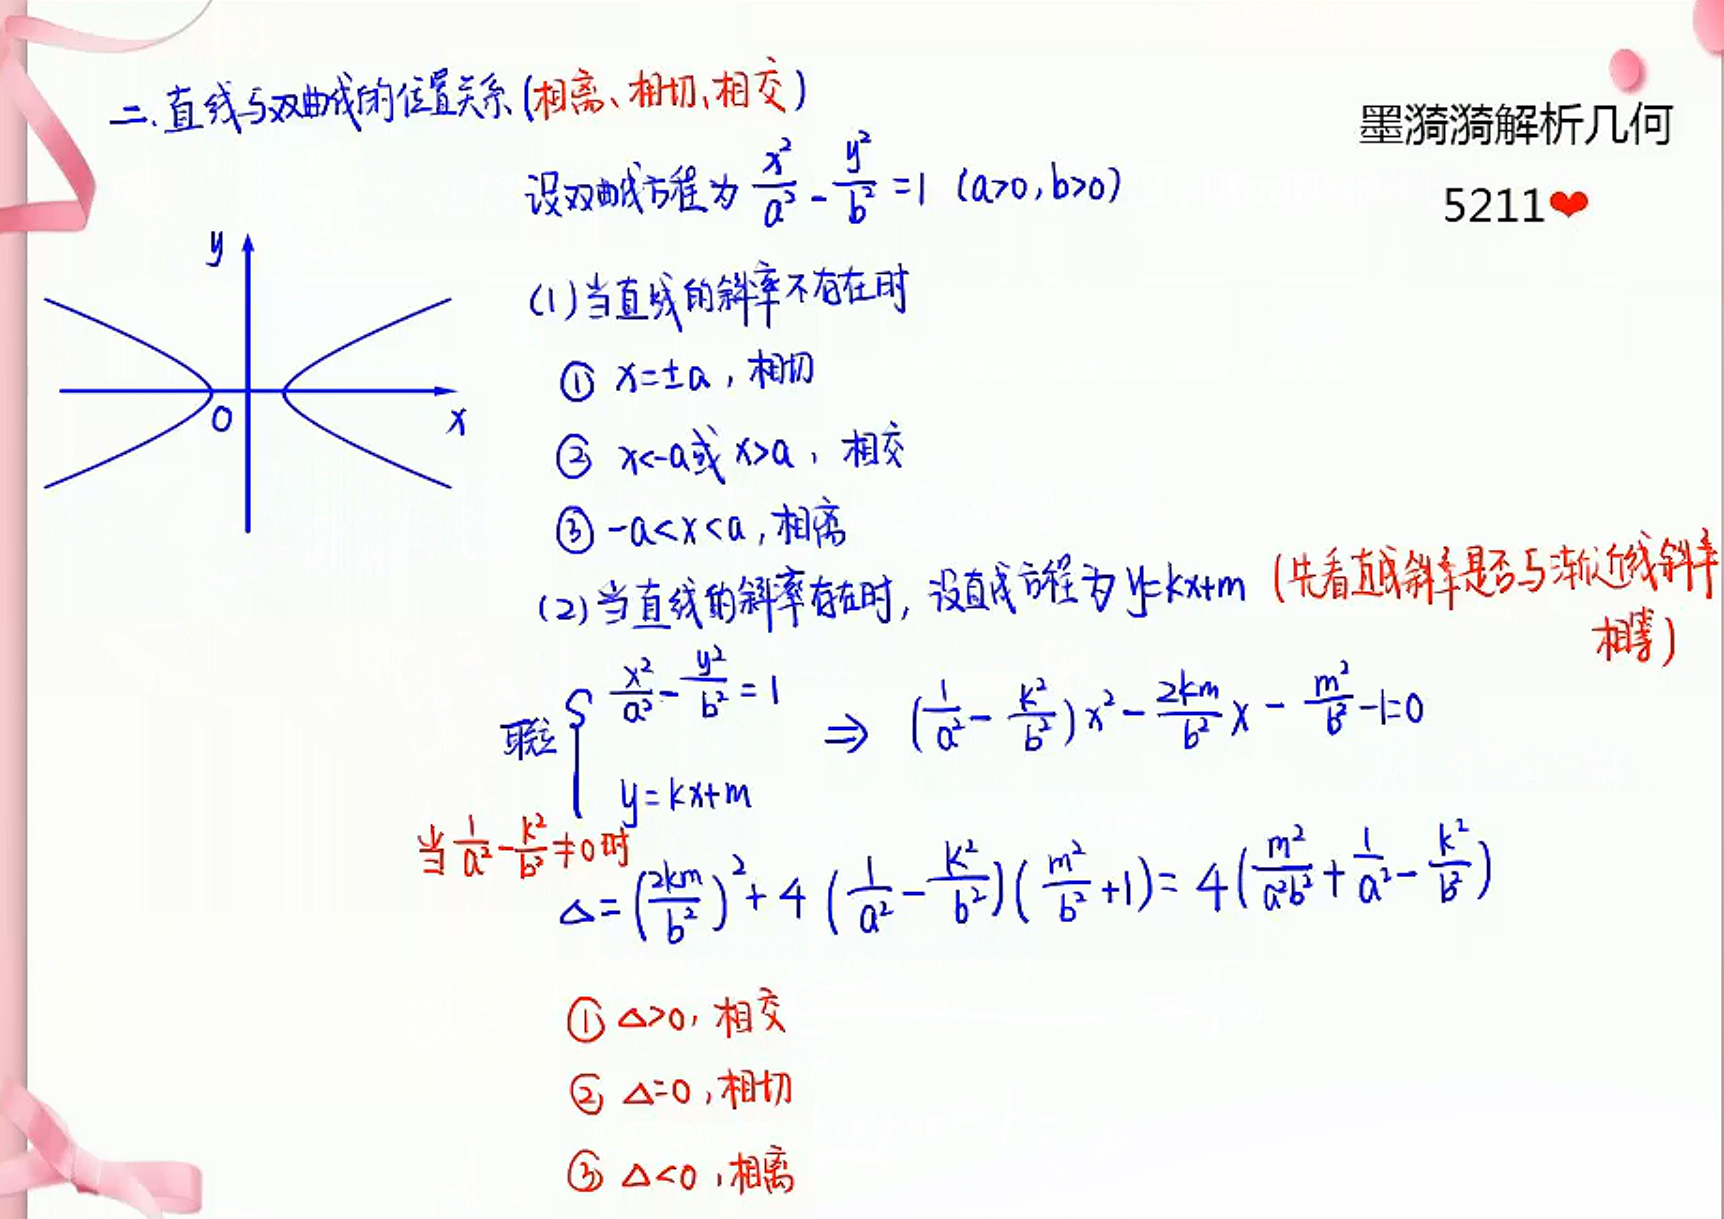 二.直线与双曲线的位置关系(相离、相切、相交)
墨漪漪解析几何
5211❤
设双曲线方程为 x²/a² - y²/b² = 1 (a>0, b>0)
y
O
x
(1)当直线的斜率不存在时
① x=±a, 相切
② x<-a或 x>a, 相交
③ -a<x<a, 相离
(2)当直线的斜率存在时, 设直线方程为 y=kx+m (先看直线斜率是否与渐近线斜率
相等)
联立 { x²/a² - y²/b² = 1
y=kx+m
⇒ (1/a² - k²/b²)x² - 2km/b² x - m²/b² -1=0
当 1/a² - k²/b² ≠0时
Δ=(2km/b²)² + 4(1/a² - k²/b²)(m²/b² +1) = 4(m²/a²b² + 1/a² - k²/b²)
① Δ>0, 相交
② Δ=0, 相切
③ Δ<0, 相离